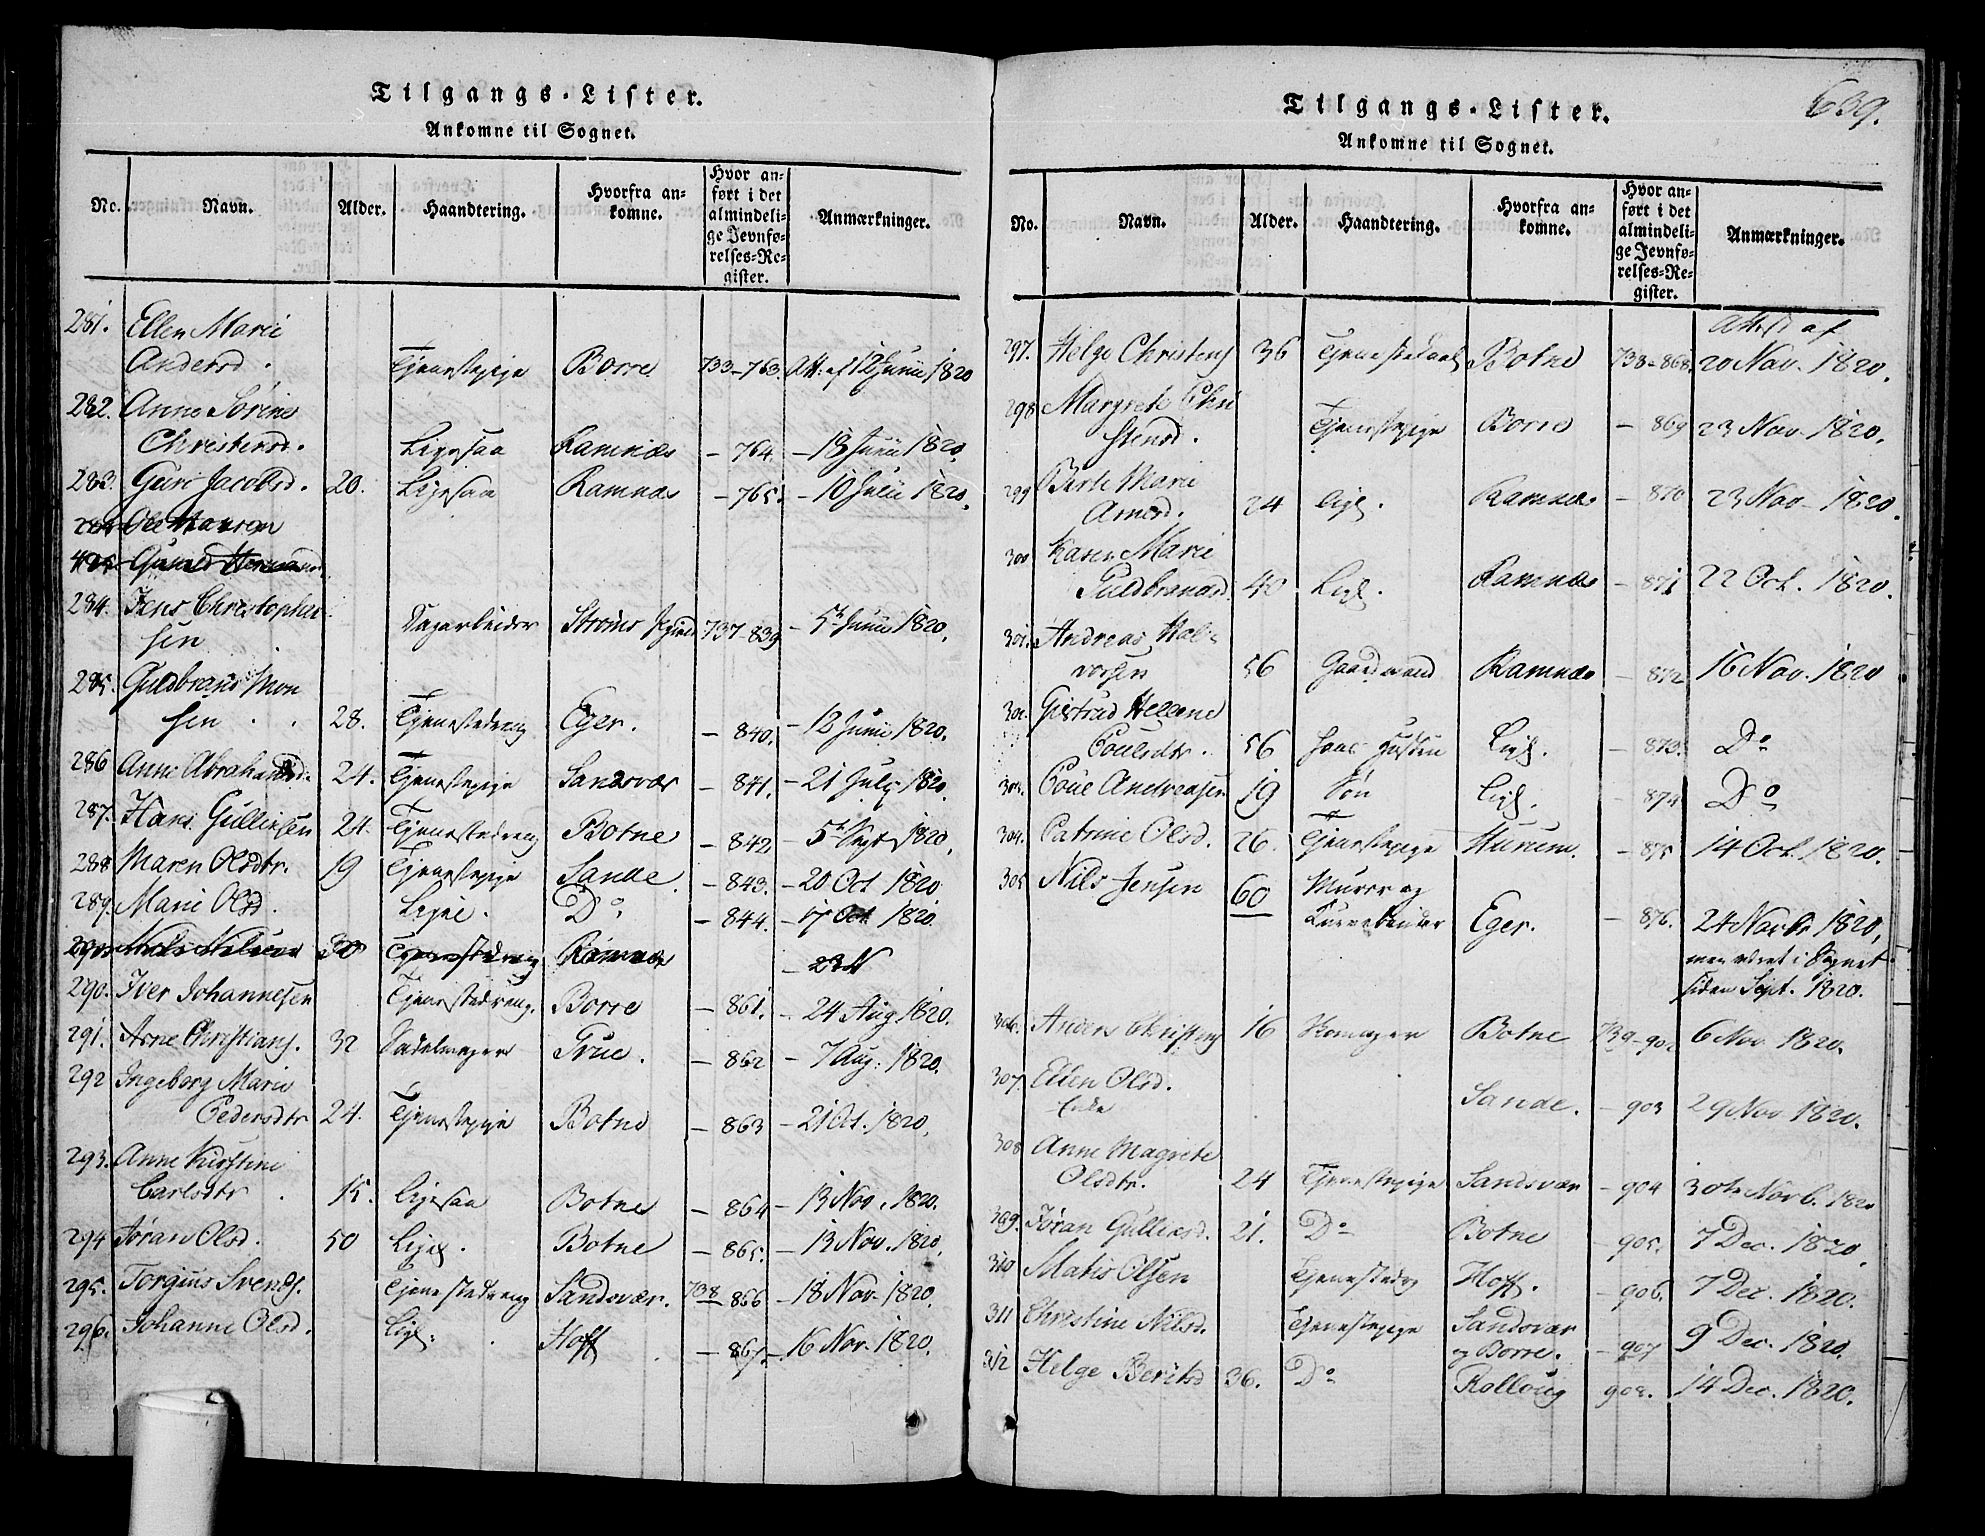 Tilgangs-Lister.
Ankomne til Sognet.
No. Navn. Alder. Haandtering. Hvorfra an-komne. Hvor an-ført i det almindeli-ge Jevnfø-relses-Re-gister. Anmærkninger.
281. Ellen Marie
Andersd. Tjenestepige Borre 733-763. Att. af 12 Junii 1820
282. Anne Sørine
Christensd. Ligesaa Ramnæs - 764. - 13 Junii 1820.
283. Guri Jacobsd. 20. Ligesaa Ramnæs - 765. - 10 Julii 1820.
284. Jens Christopher
sen Dagarbeider Strøms 737-839 - 5 Junii 1820.
285. Guldbrand Mon
sen 28. Tjenestedreng Eger. - 840. - 12 Junii 1820.
286 Anne Abrahamsd. 24. Tjenestepige Sandsvær - 841. - 21 July 1820.
287. Hans Gulliksen 24. Tjenestedreng Botne - 842 - 5 Sept 1820.
288 Maren Olsdtr. 19 Tjenestepige Sande. - 843. - 20 Oct 1820
289. Marie Olsd. Ligel. Do. - 844. - 17 Oct 1820.
Niels Nielsen 30 Tjenestedreng Ramnæs - 23 N
290. Iver Johannesen Tjenestedreng. Borre - 861. - 24 Aug 1820.
291. Arne Christians. 32 Sadelmager True. - 862 - 7 Aug. 1820.
292 Ingeborg Marie
Pedersdtr 24. Tjenestepige Botne - 863 - 21 Oct. 1820.
293. Anne Kirstine
Carlsdtr 15. Ligesaa Botne - 864 - 13 Nov. 1820.
294 Jøran Olsd. 50 Ligel. Botne - 865. - 13 Nov. 1820.
295. Torgius Svends. Tjenestedreng Sandsvær. 738 - 866 - 18 Nov. 1820.
296. Johanne Olsd. Ligl. Hoff - 867. - 16 Nov. 1820.
639.
Tilgangs-Lister.
Ankomne til Sognet.
No. Navn. Alder. Haandtering. Hvorfra an-komne. Hvor an-ført i det almindeli-ge Jevnfø-relses-Re-gister. Anmærkninger.
Attest af
297. Helge Christens 36 Botne 738-868. 20 Nov. 1820.
298 Margrete Chri
stensd. Tjenestepige Borre - 869 23 Nov. 1820.
299 Berte Marie
Arnesd. 24 Ligl. Ramnæs - 870 23 Nov. 1820.
300 Karen Marie
Guldbrandsd 40 Ligl. Ramnæs - 871 22 Oct. 1820.
301. Andreas Hal-
vorsen 56 Gaardmand Ramnæs - 872 16 Nov. 1820
302. Giertrud Hellene
Poulsdtr. 56 hans Hustru Ligl. - 873. Do
303. Poul Andreasen 19 Søn Ligl. - 874 Do
304. Patrine Olsd. 26. Tjenestepige Hurum. - 875 14 Oct. 1820.
305 Nils Jensen 60 Murer og
Kurvebinder Eger. - 876. 24 Novbr 1820,
men været i Sognet
siden Sept. 1820.
306. Anders Christens 16 Skomager Botne 739-902 6 Nov 1820.
307. Ellen Olsd.
Enke Sande. - 903 29 Nov 1820.
308 Anne Magrete
Olsdtr. 24 Tjenestepige Sandsvær - 904 30te Novb. 1820
309. Jøran Gulliksd. 21. Do Botne - 905. 7 Dec. 1820.
310 Matis Olsen Tjenestedrg Hoff. - 906. 7 Dec. 1820.
311 Christine Nilsd. Tjenestepige Sandsvær
og Borre. - 907 9 Dec. 1820.
312 Helge Beritsd 36. Do Rolloug 908. 14 Dec. 1820.